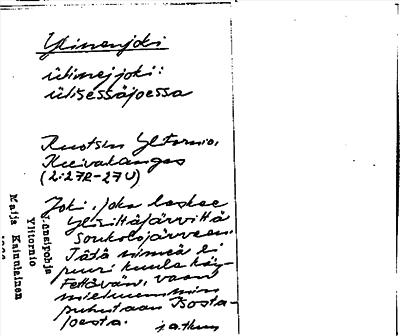 Ylinenjoki
ülinejjoki:
ülisessäjoessa
Ruotsin Ylitornio,
Kuivakangas
(2:27R-27U)
Joki, joka laskee
Ylisiltäjärviltä
Soukolojärveen.
Tätä nimeä ei
puri kuule käy-
tettävän, vaan
mieluummin
puhutaan Isosta-
joesta.
jatkuu
Länsipohja
Ylitornio
Maija Kainulainen